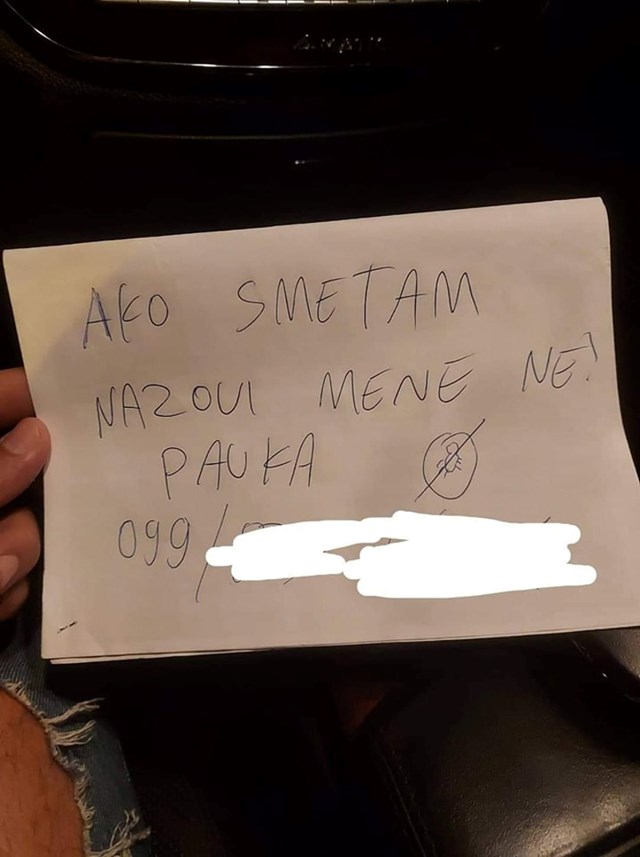 AKO SMETAM
NAZOVI MENE NE?
PAUKA
099/